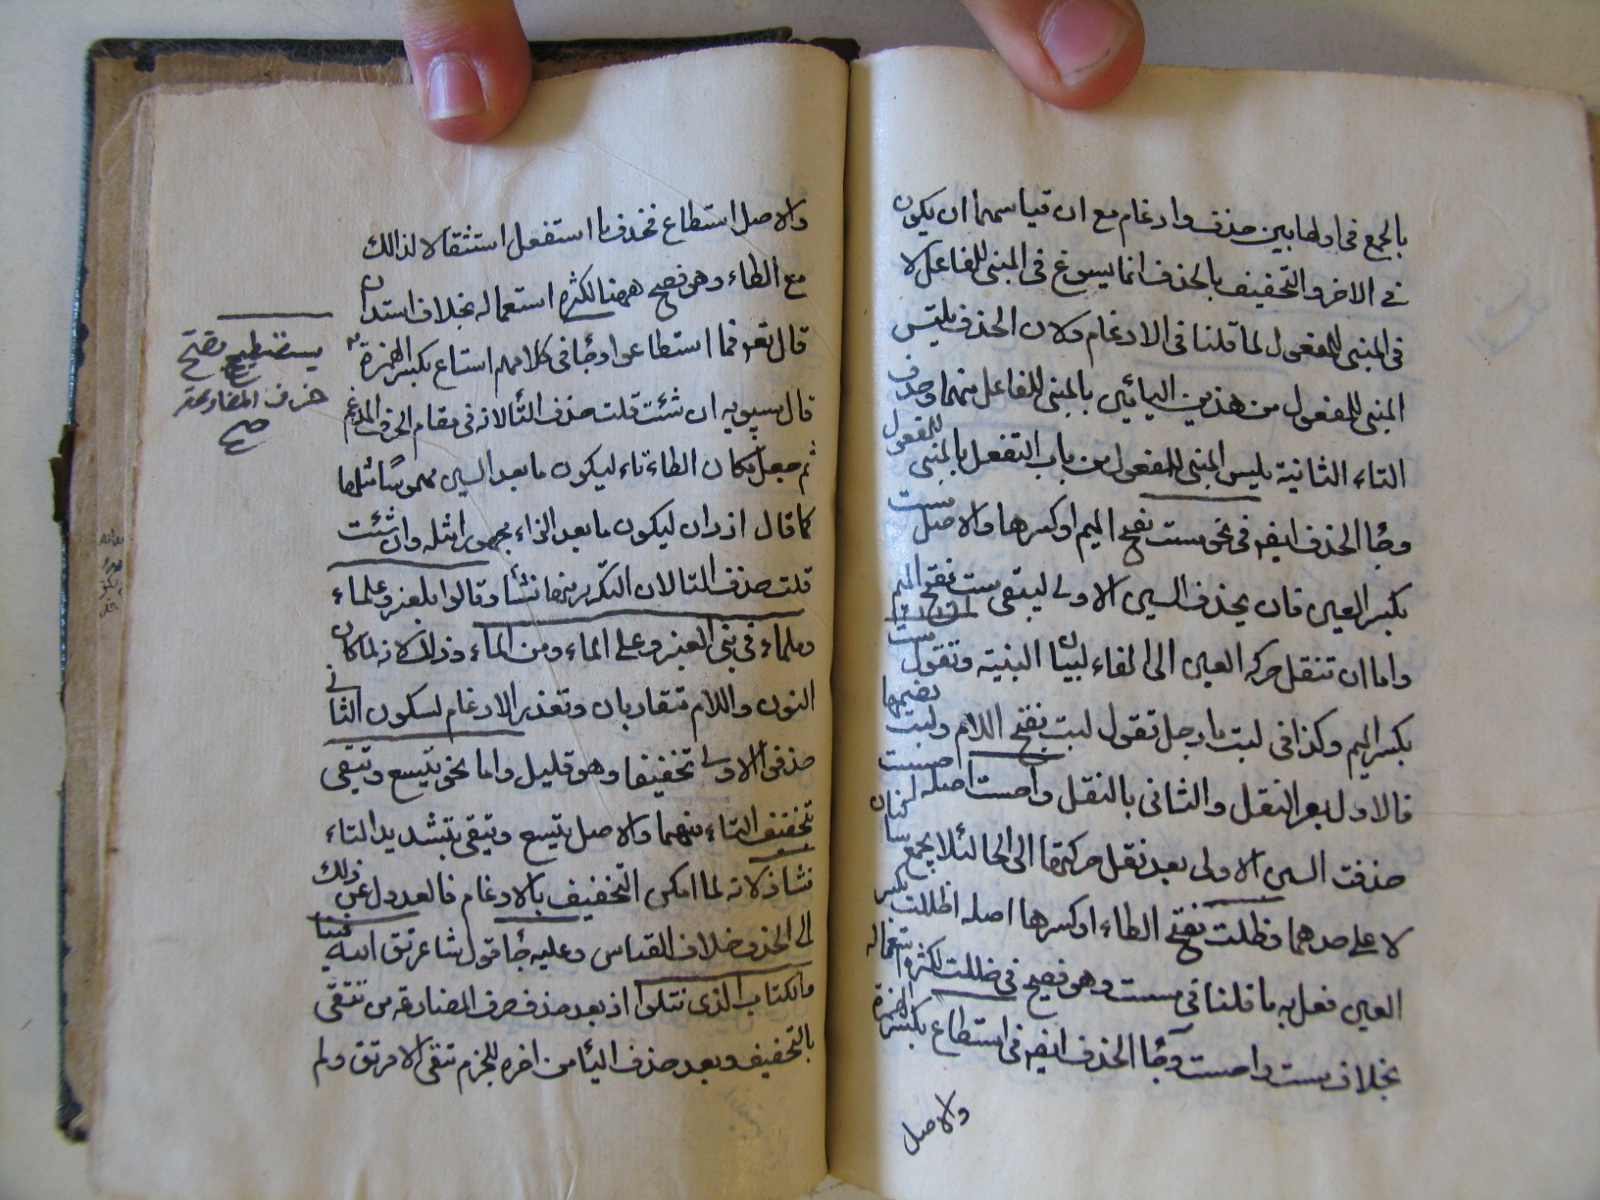 بالجمع فى اولها بين حذف وادغام مع ان قياسهما ان يكون
فى الاخر والتخفيف بالحذف انما يسوغ فى المبنى للفاعل لا
فى المبنى للمفعول لما قلنا فى الادغام ولان الحذف يلتبس
المبنى للمفعول من هذين البابين بالمبنى للفاعل منهما وحذف
التاء الثانية يلبس المبنى للمفعول من باب التفعل بالمبنى للمفعول
وجاء الحذف ايضه فى نحو مست بفتح الميم او كسرها والاصل مسست
بكسر العين فان يحذف السين الاولى ليبقى مست بفتح الميم
واما ان تنقل حركه العين الى الفاء لبيان البنية وتقول مست
بكسر الميم وكذا فى لبت يا رجل تقول لبت بفتح اللام ولبت بضمها
فالاول بغير النقل والثانى بالنقل واحست اصله احسست
حذفت السين الاولى بعد نقل حركتها الى الحا لئلا يجمع ساكنان
لا على حدهما وظلت بفتح الظاء او كسرها اصله اظللت بكسر
العين فعل به ما قلنا فى مست وهو فصيح فى ظللت لكثرة استعماله
بخلاف مست واحست وجاء الحذف ايضه فى استطاع بكسر الهمزة
والاصل
والاصل استطاع فحذف تا استفعل استثقالا لذالك
مع الطاء وهو فصيح ههنا لكثره استعماله بخلاف استدان
قال تعه فما استطاعوا وجاء فى كلامهم استاع بكسر الهمزة
قال سيبويه ان شئت قلت حذف التا لانه فى مقام الحرف المدغم
ثم جعل مكان الطاء تاء ليكون ما بعد السين مهموسا مثلها
كما قال ازدان ليكون ما بعد الزاء مجهورا مثله وان شئت
قلت حذف التا لان التكرير منها نشأ وقالوا بلعنبر وعلماء
وملماء فى بنى العنبر وعلى الماء ومن الماء وذلك لانه لما كان
النون واللام متقاربان وتعذر الادغام لسكون الثانى
حذف الاولى تخفيفا وهو قليل واما نحو يتسع ويتقى
بتخفيف التاء منهما والاصل يتسع ويتقى بتشديد التاء
فشاذ لانه لما امكن التخفيف بالادغام فالعدول عن ذلك
الى الحذف خلاف القياس وعليه جاء قول شاعر تق الله فينا
والكتاب الذى تتلوا اذ بعد حذف حرف المضارعة من تتقى
بالتخفيف وبعد حذف اليا من اخره للجزم تتقى الامر تق ولم
يستطيع بفتح
حرف المضارعة
صح